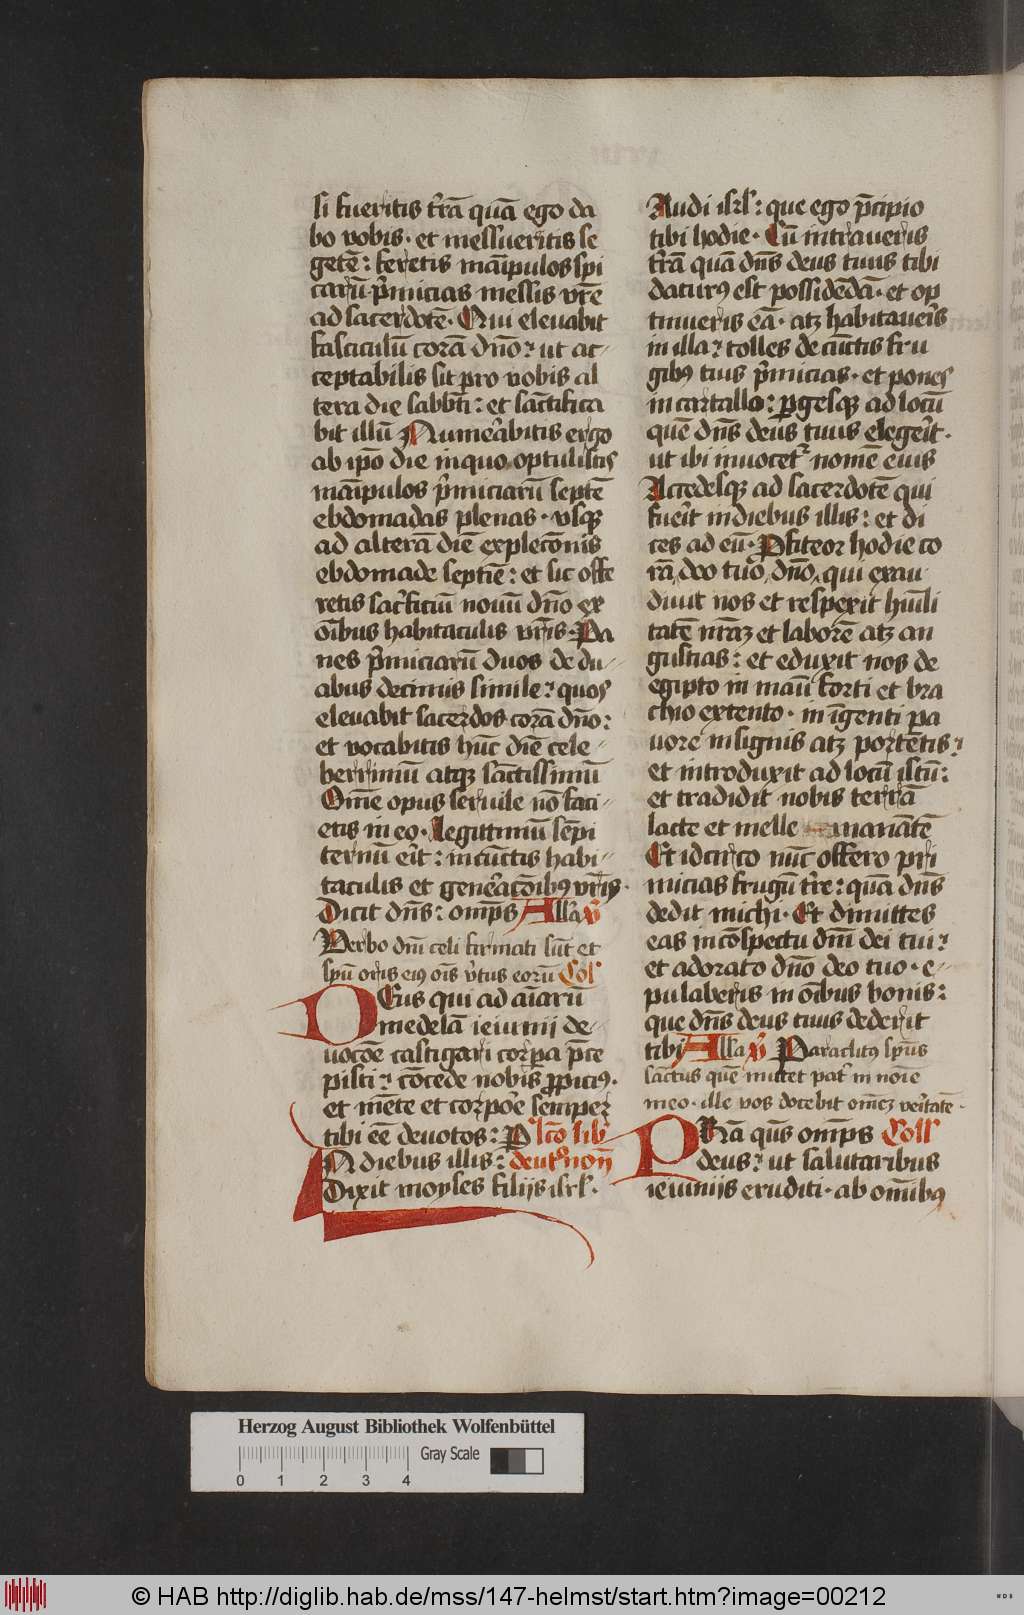 si fueritis t̄rā quā ego da
bo vobis · et messueritis se
getē : feretis maīpulos spi
carū p̄micias messis vr̄e
ad sacerdotē · Qui eleuabit
fasciculū corā dn̄o : ut ac-
ceptabilis sit pro vobis al
tera die sabb̄ti : et sāctifica
bit illū Numeābitis ergo
ab ip̄o die in quo optulistis
maīpulos p̄miciarū septē
ebdomadas plenas · vsqꝫ
ad alterā diē explec̄onis
ebdomade septīe : et sic offe
retis sacficiū nouū dn̄o ex
oībus habitaculis vr̄is · Pa
nes p̄miciarū duos de du-
abus decimis simile : quos
eleuabit sacerdos corā dn̄o :
et vocabitis hūc diē cele-
berrimū atqꝫ sāctissimū
Om̄e opus seruile nō faci-
etis in eo · Legittimū sēpi
ternū eīt : in cūctis habi-
taculis et geneāc̄oibꝰ vr̄is ·
Dicit dn̄s : omp̄s All̄a v̄
Verbo dn̄i celi firmati sūt et
spū oris eiꝰ oīs v̄tus eorū Col̄
DEus qui ad aīarū
medelā ieiunij de-
uoc̄oe castigari corꝑa p̄ce
pisti : cōcede nobis ꝓpiciꝰ ·
et mēte et corpoe semper
tibi eē deuotos : P lc̄o lib̄
IN diebus illis : deutꝰnon̄
Dixit moyses filijs isrl ·
Audi isrl : que ego p̄cipio
tibi hodie · Cū intraueris
t̄rā quā dn̄s deus tuus tibi
daturꝰ est possidēdā · et op
tinueris eā · atꝫ habitaueīs
in illa : tolles de cūctis fru
gibꝰ tuis p̄micias · et pones
in cartallo : ꝑgesqꝫ ad locū
quē dn̄s deus tuus elegeīt ·
ut ibi inuocet nomē eius
Accedesqꝫ ad sacerdotē qui
fueīt in diebus illis : et di
ces ad eū · Ꝓfiteor hodie co
rā deo tuo dn̄o qui exau
diuit nos et respexit hūili
tatē nr̄aꝫ et laborē atꝫ an
gustias : et eduxit nos de
egipto in manū forti et bra
chio extento · in īgenti pa
uore in signis atꝫ portētis :
et introduxit ad locū istū :
et tradidit nobis terrā
lacte et melle manātē
Et idcirco nūc offero pri
micias frugū t̄re : quā dn̄s
dedit michi · Et dimittes
eas in cōspectu dn̄i dei tui :
et adorato dn̄o deo tuo · e-
pulaberis in oībus bonis :
que dn̄s deus tuus dederit
tibi All̄a v̄ Paraclitꝰ spūs
sāctus quē mittet pat in noīe
meo · ille vos docebit om̄eꝫ veītatē ·
PRā qūs omp̄s Coll̄
deus : ut salutaribus
ieiunijs eruditi · ab om̄ibꝰ
Herzog August Bibliothek Wolfenbüttel
Gray Scale
0 1 2 3 4
© HAB http://diglib.hab.de/mss/147-helmst/start.htm?image=00212